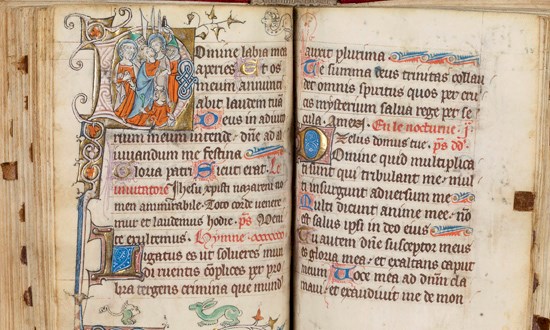 Domine labia mea
aperies. Et os
meum annunti
abit laudem tuā
Deus in adiuto
rium meum intende. dn̄e ad ad
iuuandum me festina
Gloria patri Sicut erat. Le
inuitatoire Jhesū xp̄isti nazarēi no
men ammirabile. Toto corde venere
mur et laudemus hodie. p̄s Veni
te exultemus. Hympne
Ligatus es ut solueres mun
di ruentis cōplices per pro
bra tergens crimina que mund
aurit plurima
Te summa deus trinitas collau
det omnis spiritus quos per cru
cis mysterium saluas rege per se
cula. Amen. En le nocturne. j.
Zelus domus tue. p̄s dd
Domine quid multiplica
ti sunt qui tribulant me mul
ti insurgunt aduersum me
Multi dicunt anime mee no
est salus ipsi in deo eius
Tu autem dn̄e susceptor meus
es gloria mea et exaltans caput
meum Uoce mea ad dn̄m cla
maui et exaudiuit me de mon